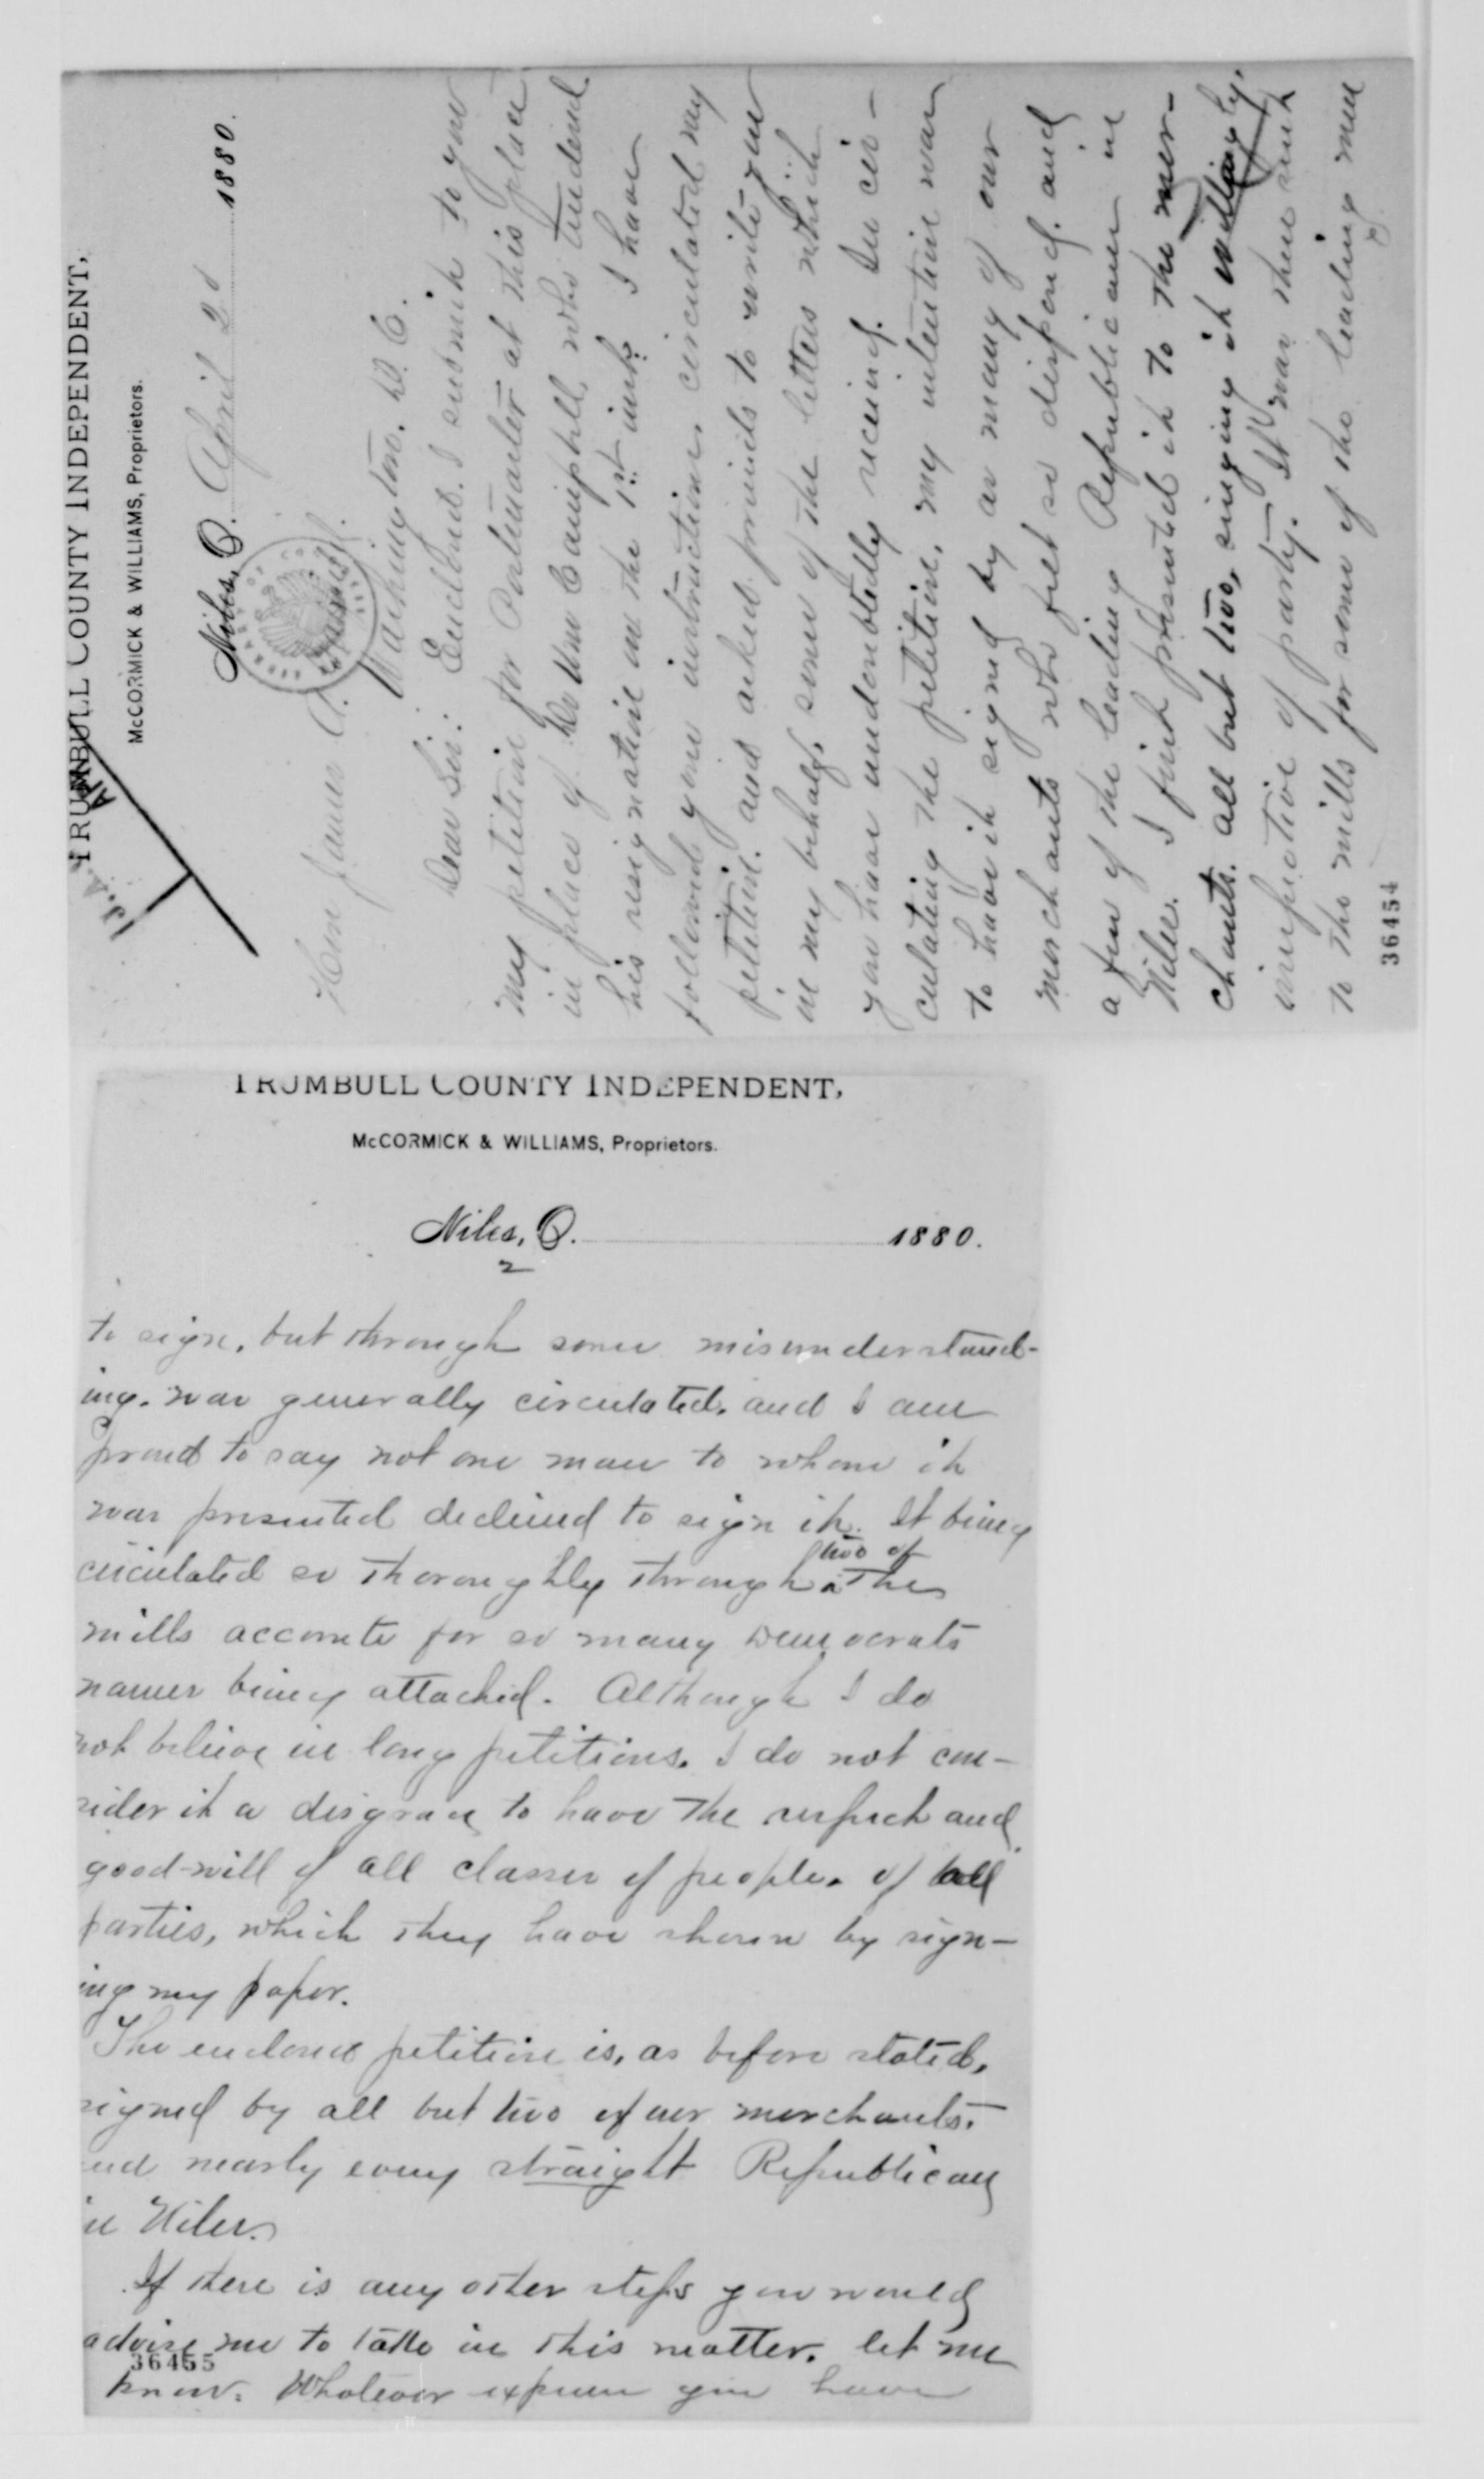 TRUMBULL COUNTY INDEPENDENT,
McCORMICK & WILLIAMS, Proprietors.
Niles, O. April 20 1880.
Hon James A.
Washington, D. C.
Dear Sir: Enclosed I submit to you
my petition for Postmaster at this place
in place of Dr Wm Campbell, who tendered
his resignation on the 1st inst. I have
followed your instructions, circulated my
petition, and asked friends to write you
in my behalf, some of the letters which
you have undoubtedly received. In cir-
culating the petition, my intention was
to have it signed by as many of our
merchants who felt so disposed, and
a few of the leading Republicans in
Niles. I first presented it to the mer-
chants, all but two, signing it willingly,
irrespective of party. It was then sent
to the mills for some of the leading men
36454
TRUMBULL COUNTY INDEPENDENT,
McCORMICK & WILLIAMS, Proprietors.
Niles, O. 1880.
2
to sign, but through some misunderstand-
ing, was generally circulated, and I am
proud to say not one man to whom it
was presented declined to sign it. It being
two of
circulated so thoroughly through the
mills accounts for so many Democrats
names being attached. Although I do
not believe in long petitions, I do not con-
sider it a disgrace to have the respect and
good-will of all classes of people, of all
parties, which they have shown by sign-
ing my paper.
The enclosed petition is, as before stated,
signed by all but two of our merchants,
and nearly every straight Republican
in Niles.
If there is any other steps you would
advise me to take in this matter, let me
36455
know. Whatever expense you have